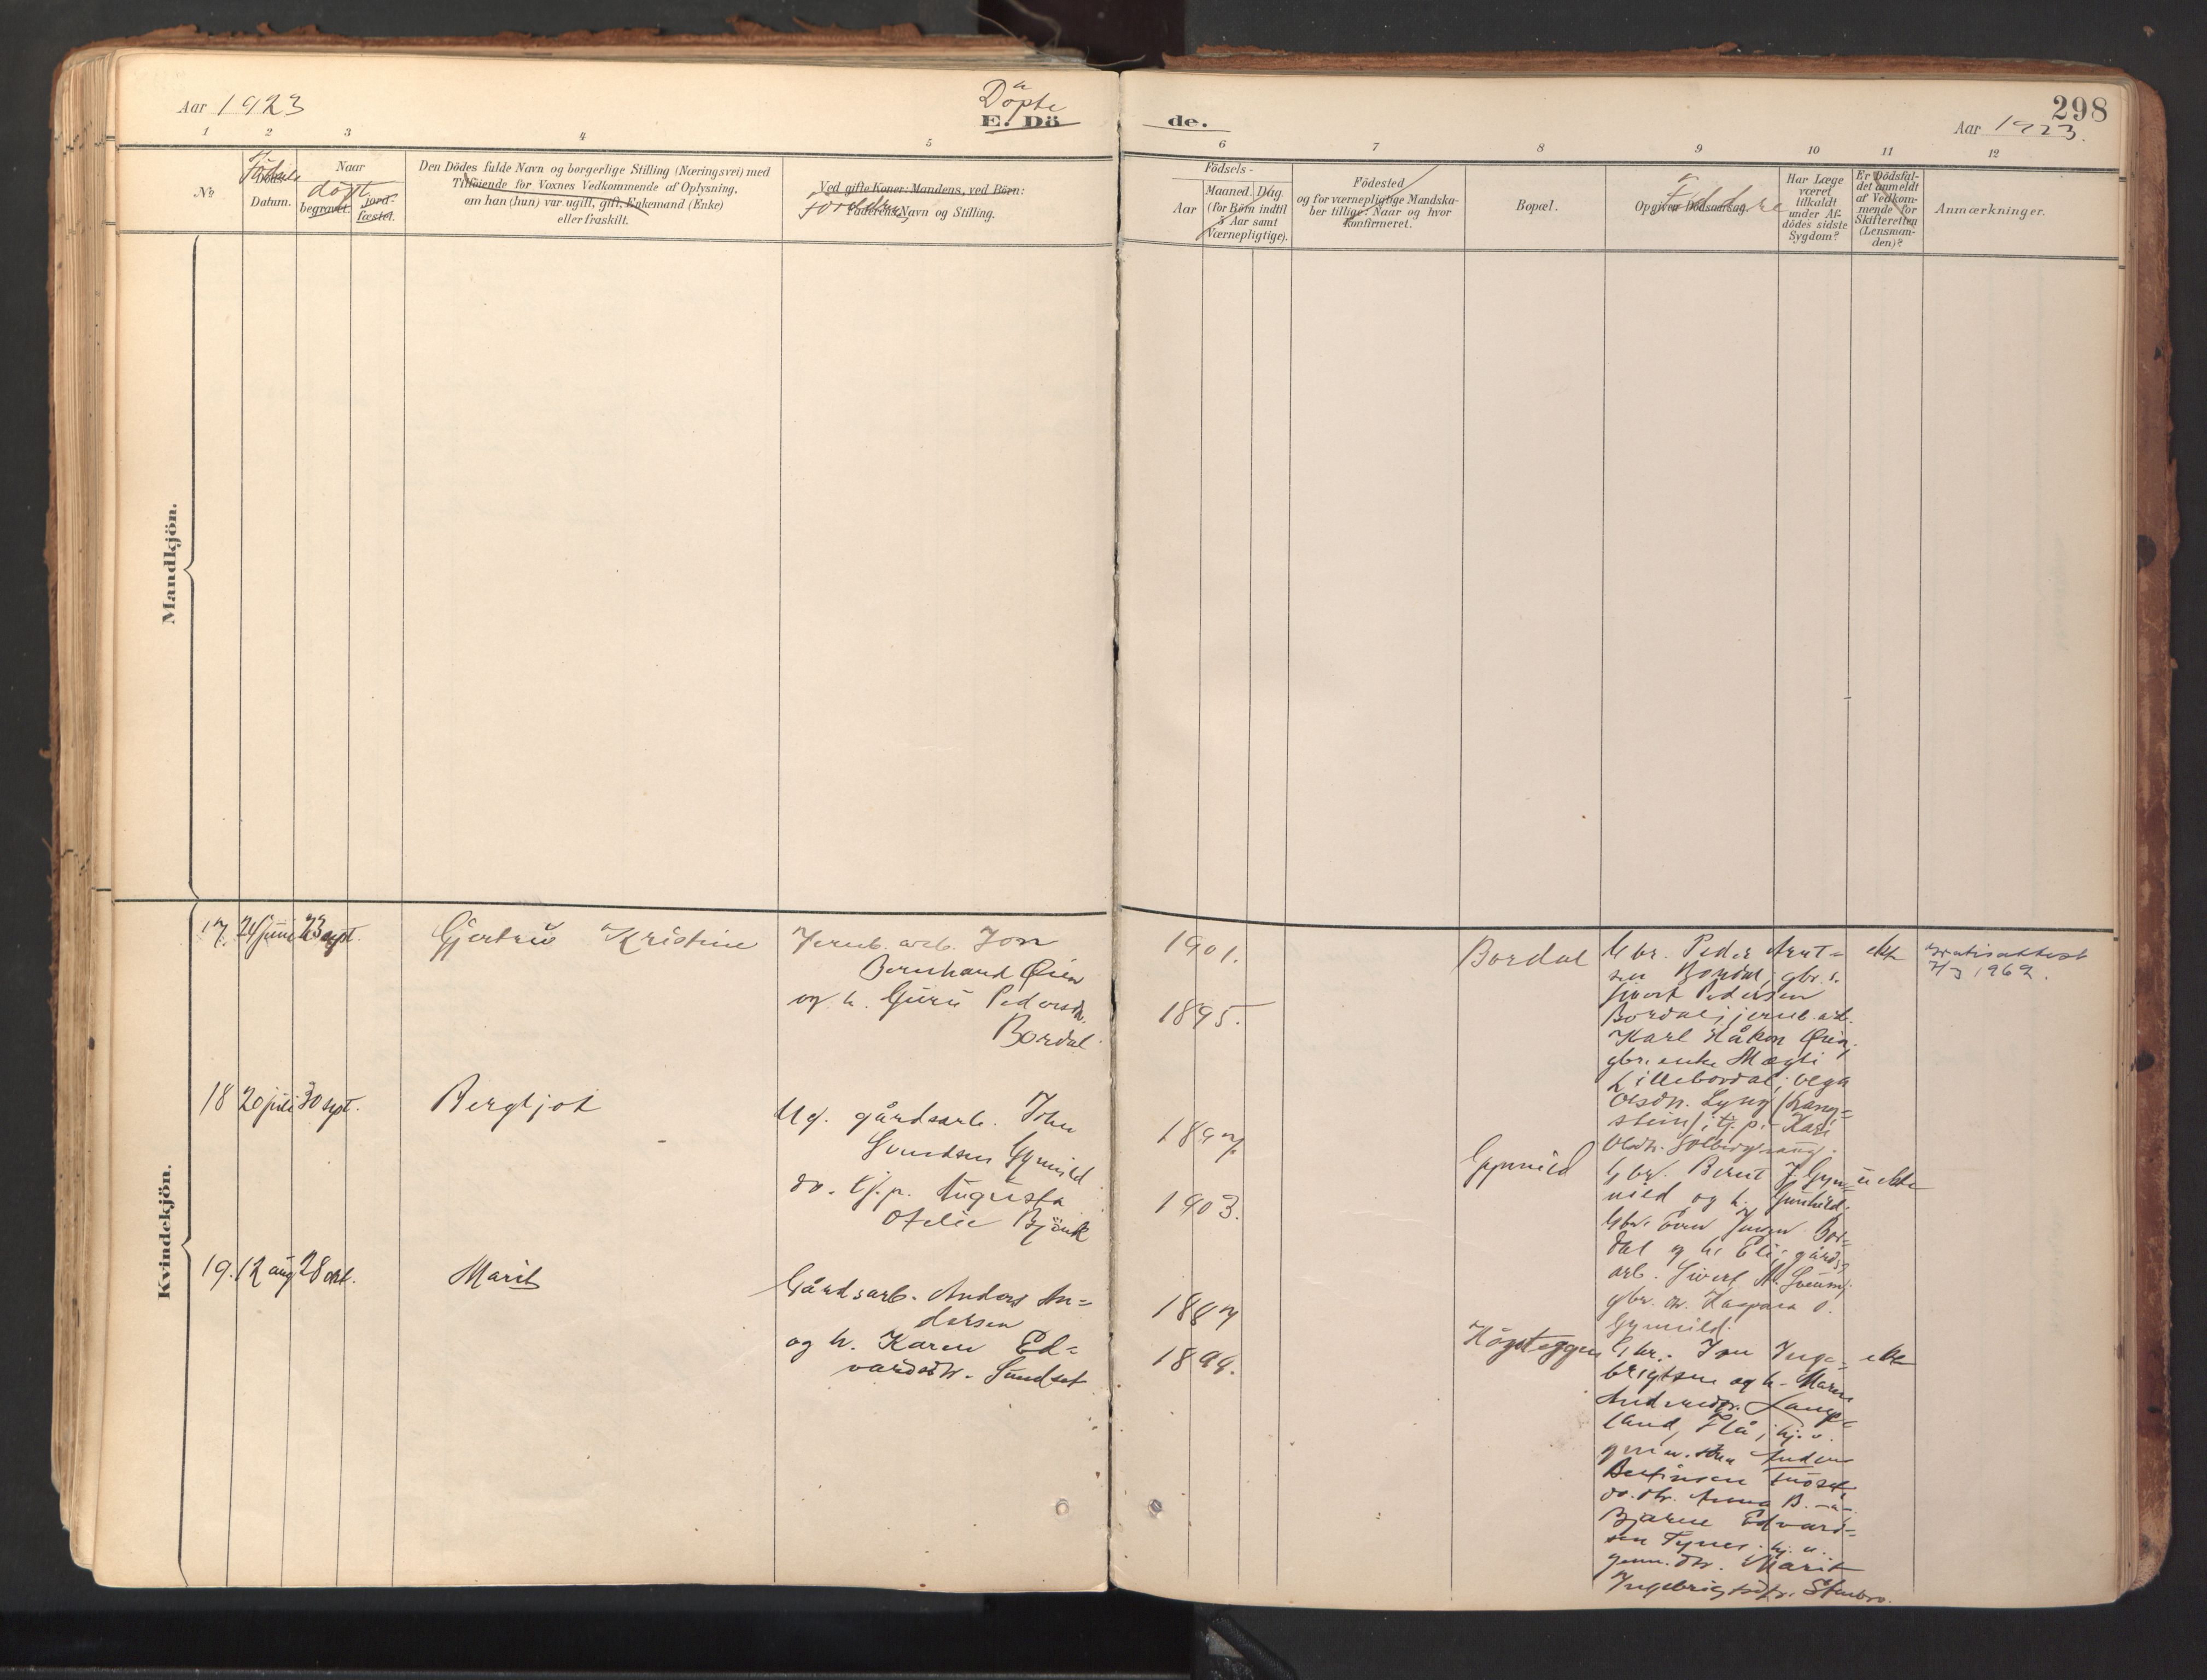 Aar 1923
Döpte
E. Dö
de.
298
Aar 1923.
1 2 3 4 5 6 7 8 9 10 11 12
No.
Datum.
Naar
döpt
begravet.
jord-
fæstet.
Den Dödes fulde Navn og borgerlige Stilling (Næringsvei) med
Tilföiende for Voxnes Vedkommende af Oplysning,
om han (hun) var ugift, gift, Enkemand (Enke)
eller fraskilt.
Ved gifte Koner: Mandens, ved Börn:
Faderens Navn og Stilling.
Födsels-
Aar
Maaned. Dag.
(for Börn indtil
5 Aar samt
Værnepligtige).
Födested
og for værnepligtige Mandska-
ber tillige: Naar og hvor
konfirmeret.
Bopæl.
Opgiven Dödsaarsag.
Faddere
Har Læge
været
tilkaldt
under Af-
dödes sidste
Sygdom?
Er Dödsfal-
det anmeldt
af Vedkom-
mende for
Skifteretten
(Lensman-
den)?
Anmærkninger.
Mandkjön.
Kvindekjön.
17. 24 juni 23 sept. Gjertrud Kristine
Jernb. arb. Jon
Bernhard Øien
og h. Guru Pedersdr.
Bordal
1901.
1895.
Bordal
Gbr. Peder Arnt-
sen Bordal; gbr. s.
Sivert Pedersen
Bordal; jernb. arb.
Karl Håkon Øien;
gbr. enke Magli
Lillebordal; Olga
Olsdr. Lyng (Lang-
stein); tj. p. Kari
Olsdr. Solberg
ekte
Gratisattest
7/3 1962.
18 20 juli 30 sept. Bergljot
Ug. gårdsarb. John
Svendsen Gynnild
do. tj. p. Augusta
Otelie Bjönk
1897
1903.
Gynnild
Gbr. Bernt J. Gyn-
nild og h. Gunhild;
Gbr. Even Jonsen Bor-
dal og h. Eli; gårds
arb. Sivert A.
gbr. dr. Kaspara O.
Gynnild.
uekte
19. 12 aug 28 okt. Marit
Gårdsarb. Anders An-
dersen
og h. Karen Ed-
vardsdr. Sundset
1887
1899.
Högsteggen
Gbr. Jon Inge-
brigtsen og h. Maren
Andersdr. Lang-
land, Flå; hj. v.
Anders
do. dr. Anna B.
Bjarne Edvard-
sen
dr. Marit
Ingebrigtsdr. Stenbro.
ekte